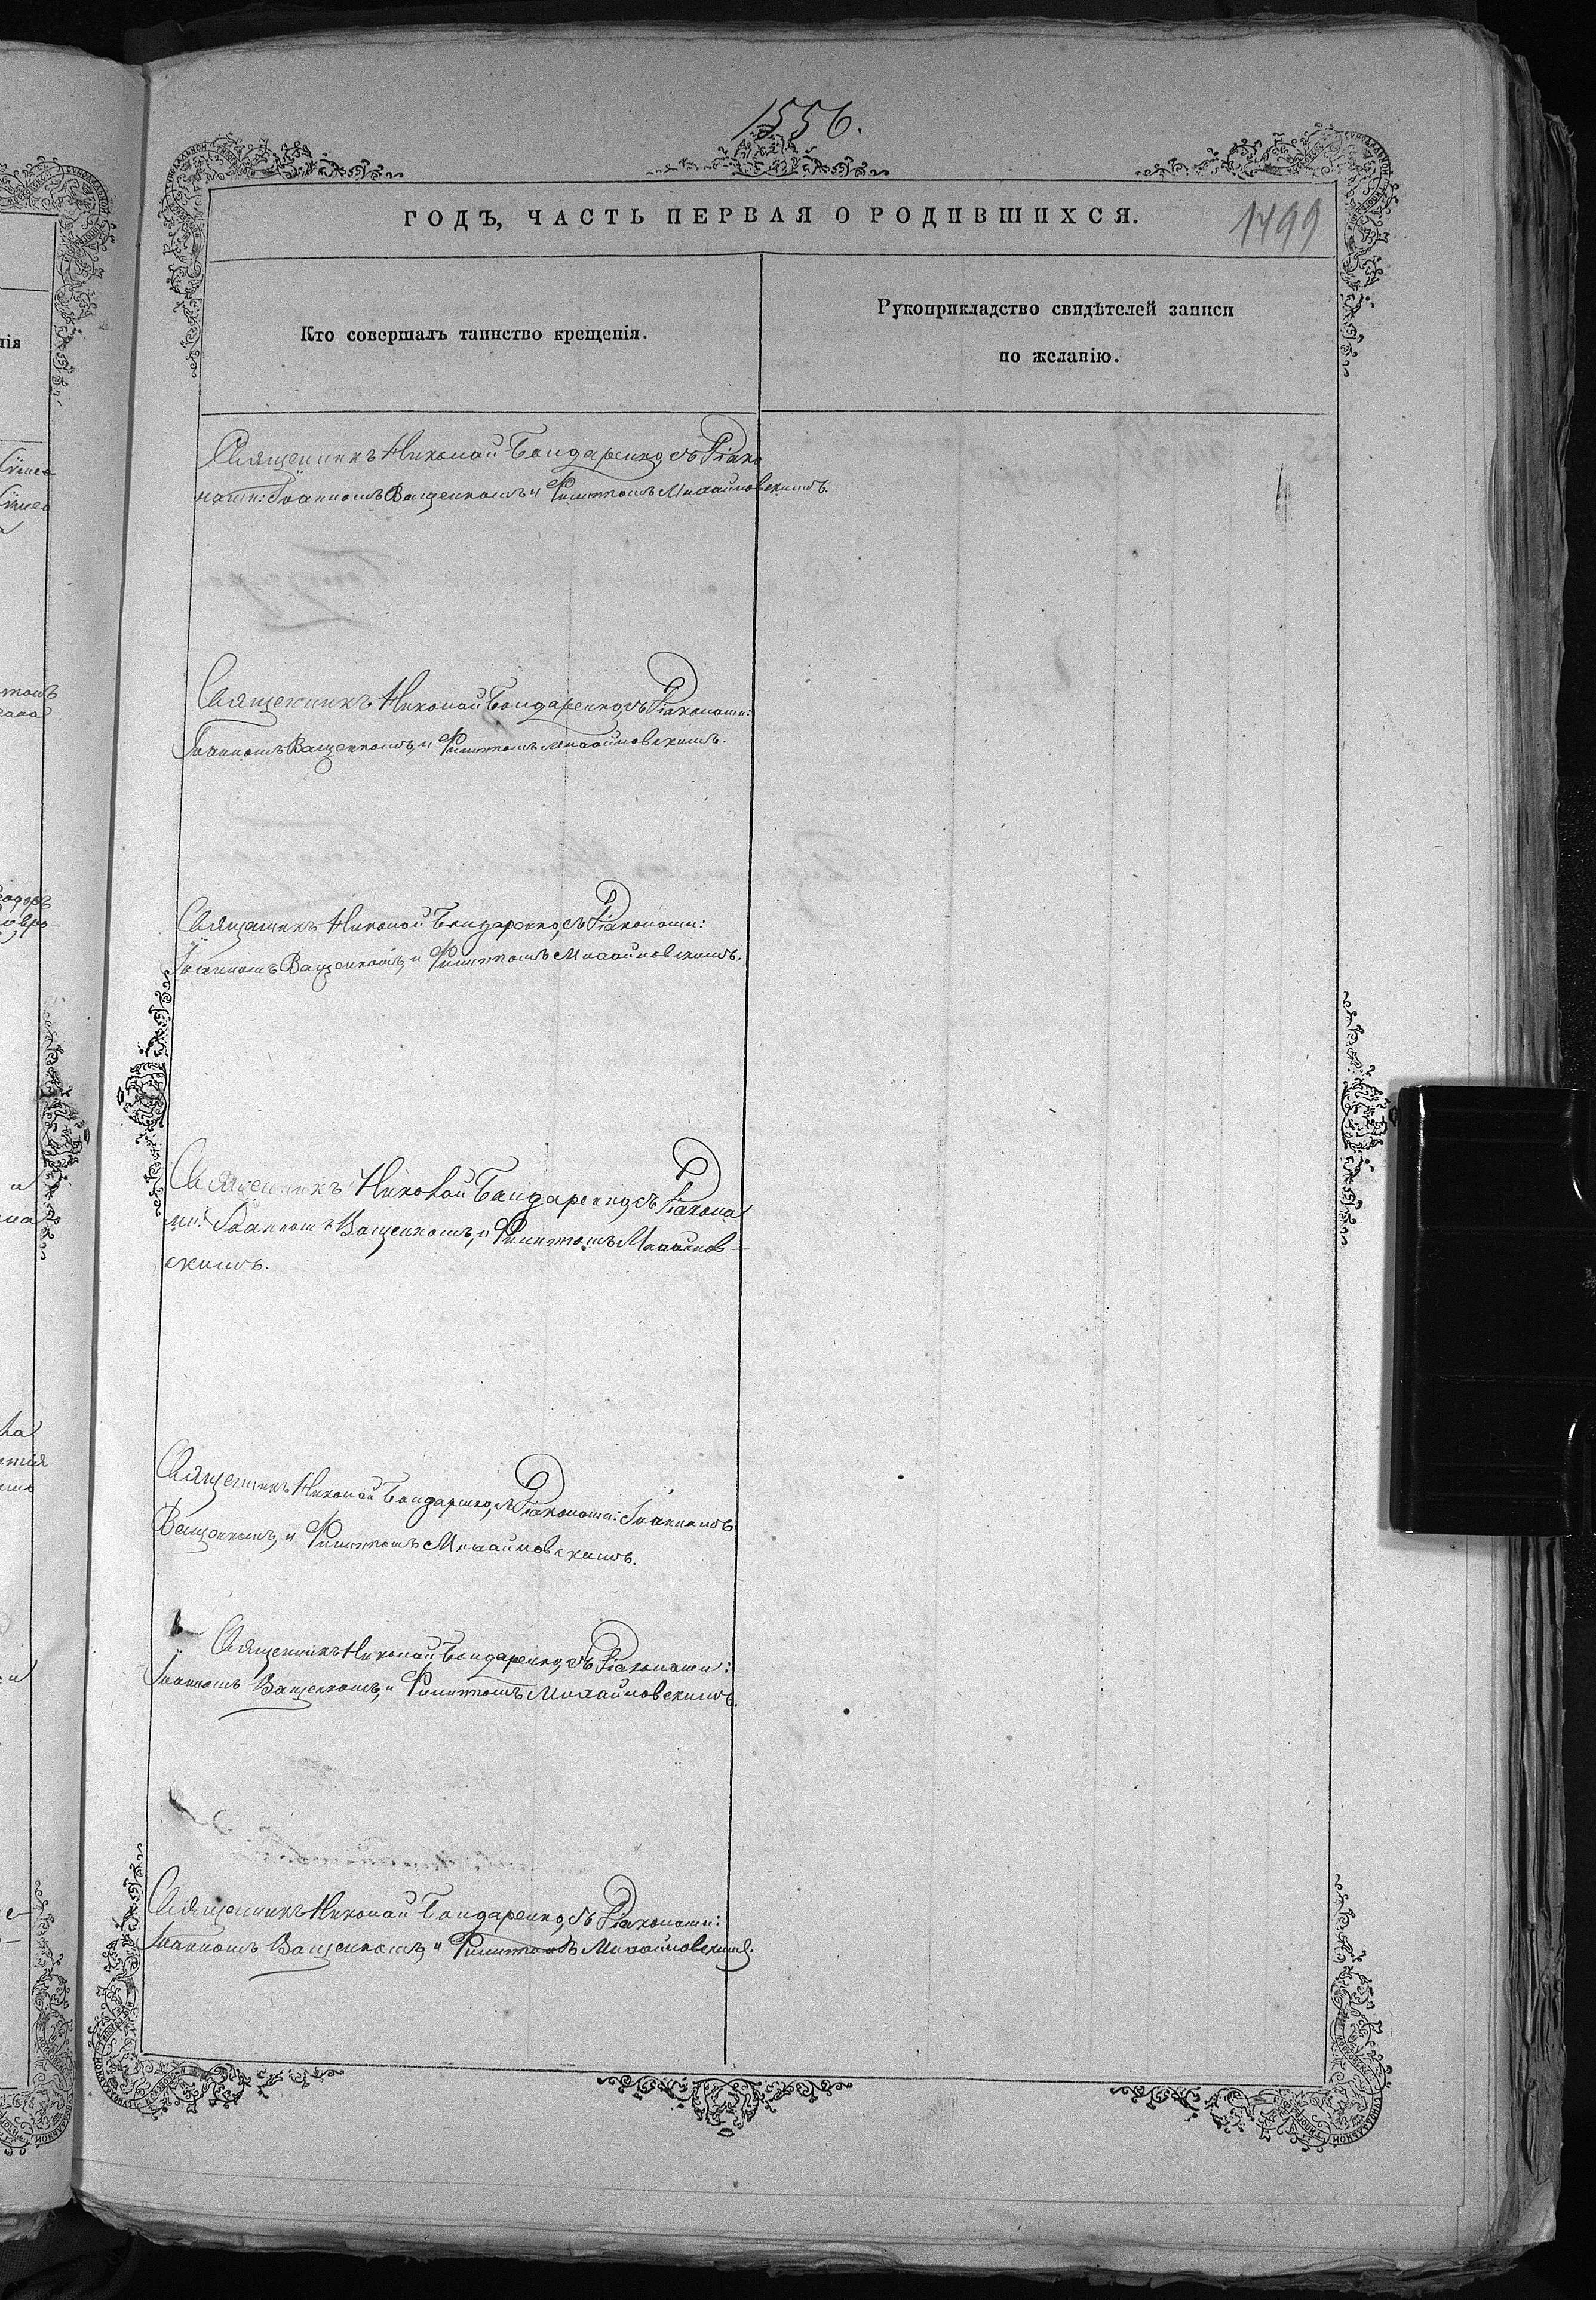 1556.
ГОДЪ, ЧАСТЬ ПЕРВАЯ О РОДИВШИХСЯ.
1499
Кто совершалъ таинство крещенія.
Рукоприкладство свидѣтелей записи
по желанію.
Священникъ Николай Бондаренко, съ Діако
нами: Іоанномъ Ващенкомъ и Филиппомъ Михайловскимъ.
Священникъ Николай Бондаренко, съ Діаконами:
Іоанномъ Ващенкомъ, и Филиппомъ Михайловскимъ.
Священникъ Николай Бондаренко, съ Діаконами:
Іоанномъ Ващенкомъ, и Филиппомъ Михайловскимъ.
Священникъ Николай Бондаренко, съ Діакона
ми: Іоанномъ Ващенкомъ, и Филиппомъ Михайлов-
скимъ.
Священникъ Николай Бондаренко, съ Діаконами: Іоанномъ
Ващенкомъ, и Филиппомъ Михайловскимъ.
Священникъ Николай Бондаренко, съ Діаконами:
Іоанномъ Ващенкомъ, и Филиппомъ Михайловскимъ.
Священникъ Николай Бондаренко, съ Діаконами:
Іоанномъ Ващенкомъ, и Филиппомъ Михайловскимъ.